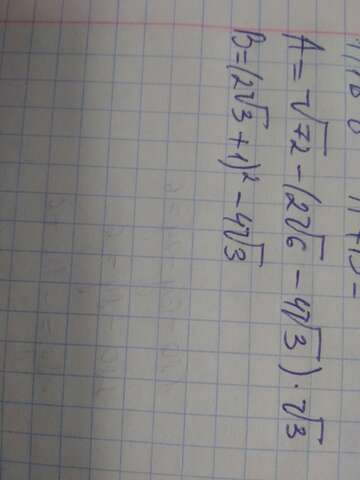 A = √72 − (2√6 − 4√3) · √3
B = (2√3 + 1)² − 4√3